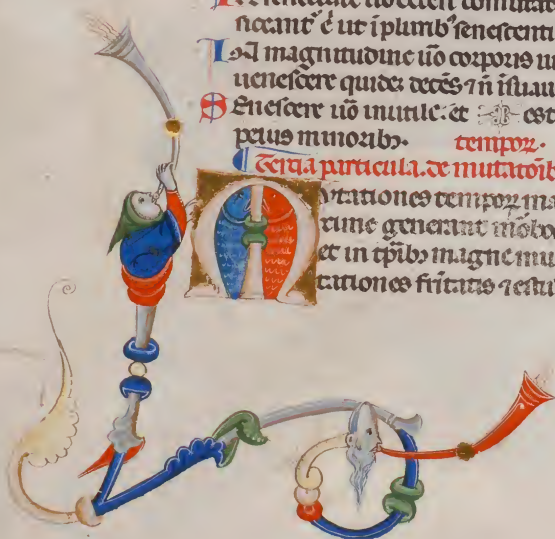 siccant᷒ é ut i plurib᷒ senescenti
In magnitudine uo corporis iu
uenescere quidez decẽs ⁊ ñ isuau
Senescere uo inutile. et est
peius minorib᷒. tempoꝝ.
Tertia particula. de mutatoib
Mvtationes tempoꝝ ma
rime generant moᷓbo
et in tp̃ib᷒ magne mu
tationes frĩtatis ⁊ estu